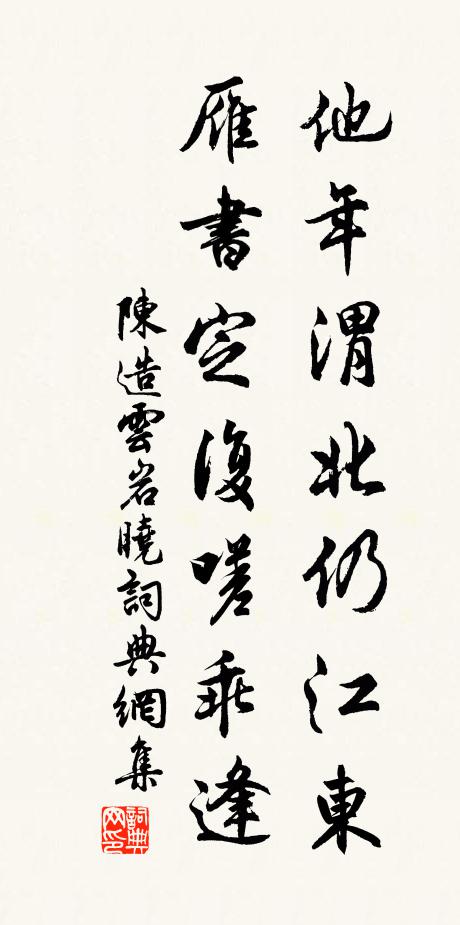 他年渭北仍江東
雁書定復嗟乖逢
陳造雲岩曉詞典網集
詞典
网印